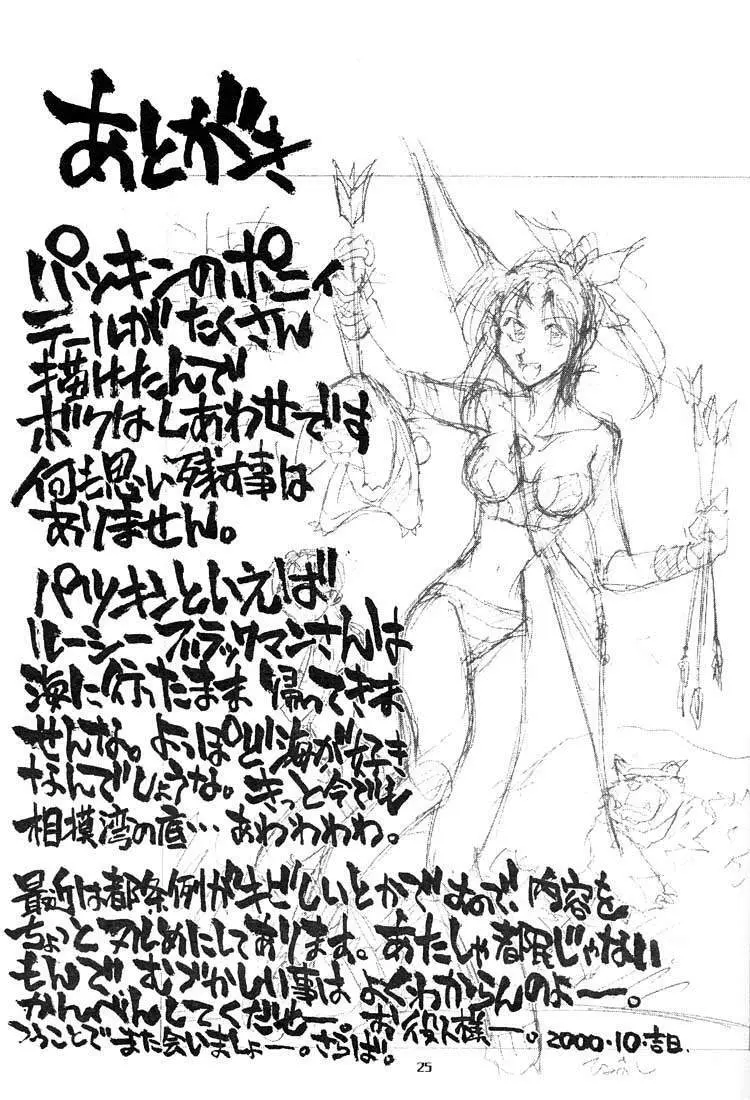 あとがき
パツキンのポニィ
テールがたくさん
描けたんで
ボクはしあわせです
何も思い残す事は
ありません。
パツキンといえば
ルーシーブラックマンさんは
海に行ったまま 帰ってきま
せんな。よっぽど海が好き
なんでしょうな。きっと今でも
相模湾の底… あわわわわ。
最近は都条例がキビしいとかですので、内容を
ちょっとヌルめにしてあります。あたしゃ都民じゃない
もんで むづかしい事は よくわからんのよー。
かんべんしてくだせー。お役人様ー。
つうことで また会いましょー。さらば。
2000.10.吉日.
25